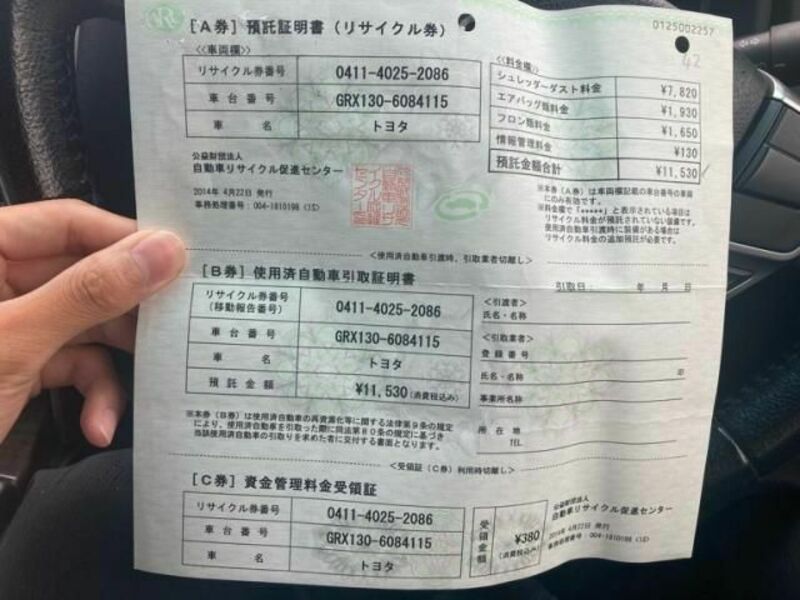 0125002257
42
[A券] 預託証明書 (リサイクル券)
≪車両欄≫
リサイクル券番号 0411-4025-2086
車台番号 GRX130-6084115
車名 トヨタ
≪料金欄≫
シュレッダーダスト料金 ¥7,820
エアバッグ類料金 ¥1,930
フロン類料金 ¥1,650
情報管理料金 ¥130
預託金額合計 ¥11,530
公益財団法人
自動車リサイクル促進センター
2014年 4月22日 発行
事務処理番号:004-1810198 (1S)
※本券(A券)は車両欄記載の車台番号の車両
にのみ有効です。
※料金欄で「*****」と表示されている項目は
リサイクル料金が預託されていない装備です。
使用済自動車引渡時に装備がある場合は
リサイクル料金の追加預託が必要です。
<使用済自動車引渡時、引取業者切離し>
[B券] 使用済自動車引取証明書
引取日: 年 月 日
リサイクル券番号
(移動報告番号) 0411-4025-2086
車台番号 GRX130-6084115
車名 トヨタ
預託金額 ¥11,530(消費税込み)
<引渡者>
氏名・名称
<引取業者>
登録番号
氏名・名称 印
事業所名称
所在地
TEL
※本券(B券)は使用済自動車の再資源化等に関する法律第9条の規定
により、使用済自動車を引取った際に同法第80条の規定に基づき
当該使用済自動車の引取りを求めた者に交付する書面となります。
<受領証(C券)利用時切離し>
[C券] 資金管理料金受領証
リサイクル券番号 0411-4025-2086
車台番号 GRX130-6084115
車名 トヨタ
受領金額 ¥380
(消費税込み)
公益財団法人
自動車リサイクル促進センター
2014年 4月22日 発行
事務処理番号:004-1810198 (1S)